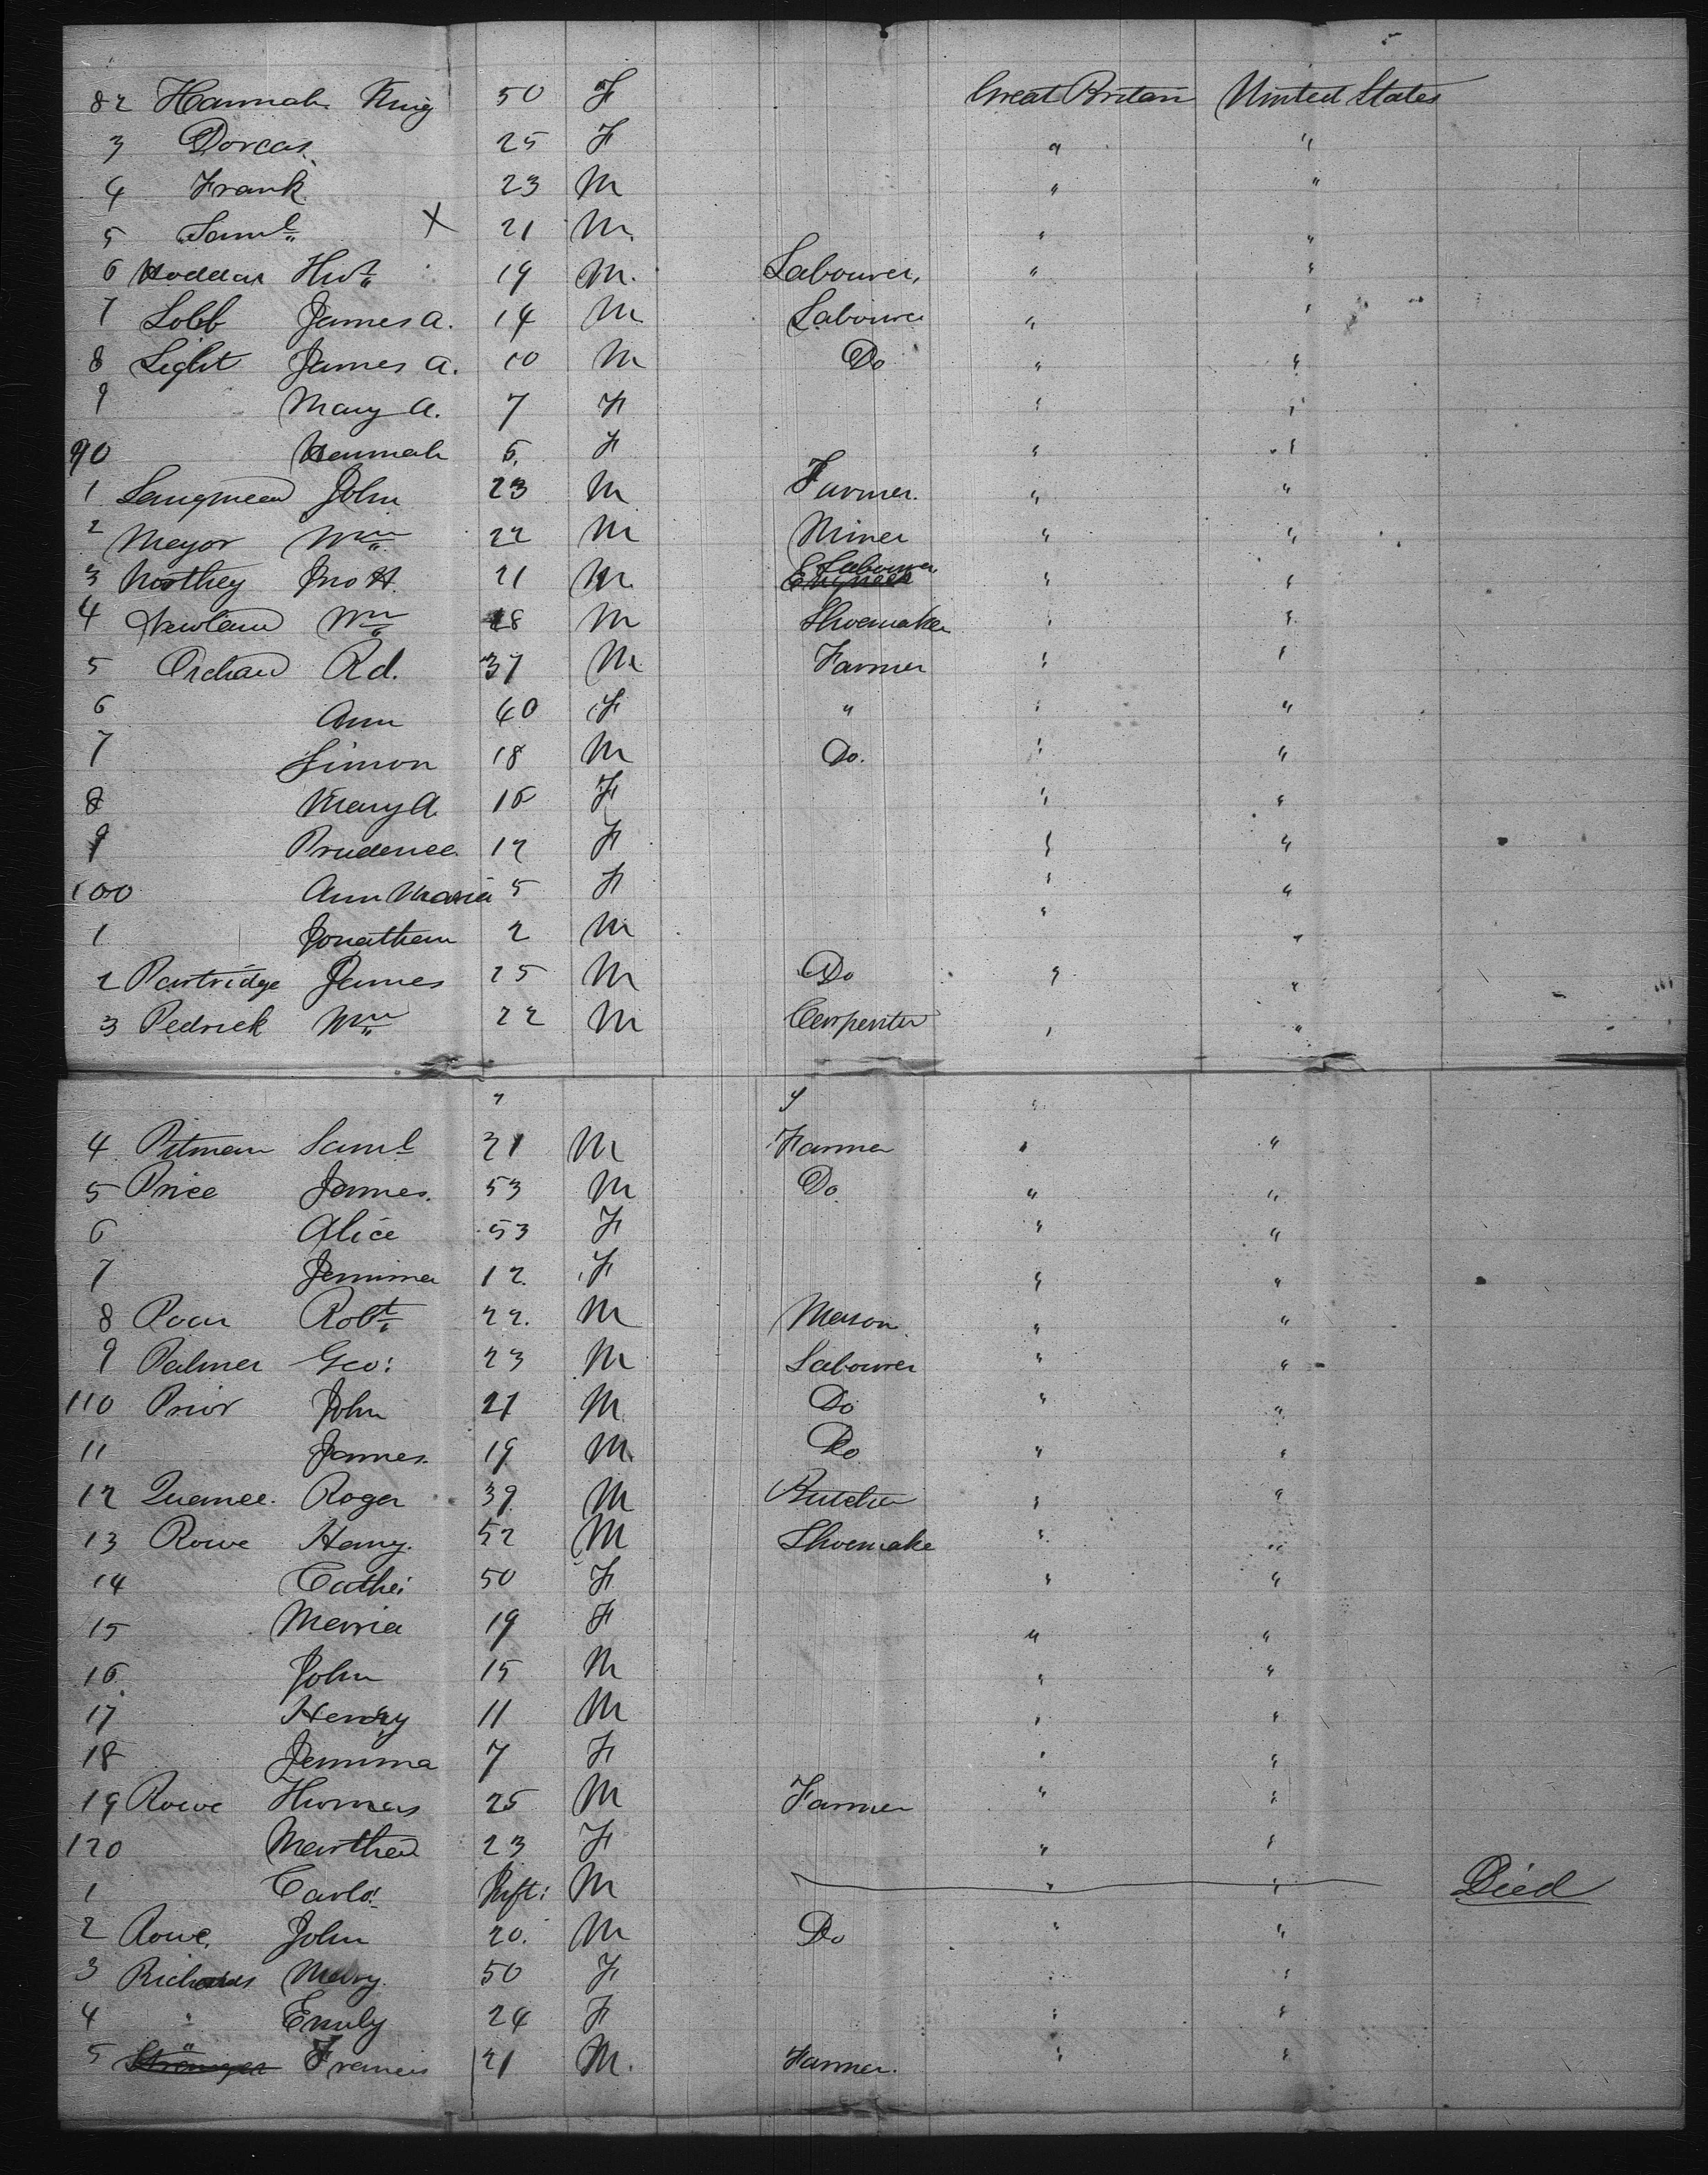 82 Hannah King 50 F Great Britain United States
3 Dorcas 25 F " "
4 Frank 23 M " "
5 Saml X 21 M " "
6 19 M Labourer " "
7 Lobb James A. 14 M Labourer " "
8 Light James A. 10 M Do " "
9 Mary A. 7 F " "
90 Hannah 5 F " "
1 Langmead John 23 M Farmer " "
2 Meyor Wm 22 M Miner " "
3 Northey Jno H. 21 M Labourer Engineer " "
4 Newland Wm 28 M Shoemaker " "
5 Orchard Rd. 37 M Farmer " "
6 Ann 40 F " " "
7 Simon 18 M Do. " "
8 Mary A. 16 F " "
9 Prudence 12 F " "
100 Ann Maria 5 F " "
1 Jonathan 2 M " "
2 Partridge James 25 M Do " "
3 Pedrick Wm 22 M Carpenter " "
4 Pitman Saml 31 M Farmer " "
5 Price James. 53 M Do " "
6 Alice 53 F " "
7 Jemima 12 F " "
8 Robt 22 M Mason " "
9 Palmer Geo: 23 M Labourer " "
110 Prior John 21 M Do " "
11 James 19 M Do " "
12 Quance Roger 39 M Butcher " "
13 Rowe Henry 52 M Shoemake " "
14 Cathe: 50 F " "
15 Maria 19 F " "
16 John 15 M " "
17 Henry 11 M " "
18 Jemima 7 F " "
19 Rowe Thomas 25 M Farmer " "
120 Martha 23 F " "
1 Inft: M " " Died
2 Rowe John 20 M Do " "
3 Richards Mary 50 F " "
4 " Emily 24 F " "
5 " Francis 21 M. Farmer. " "